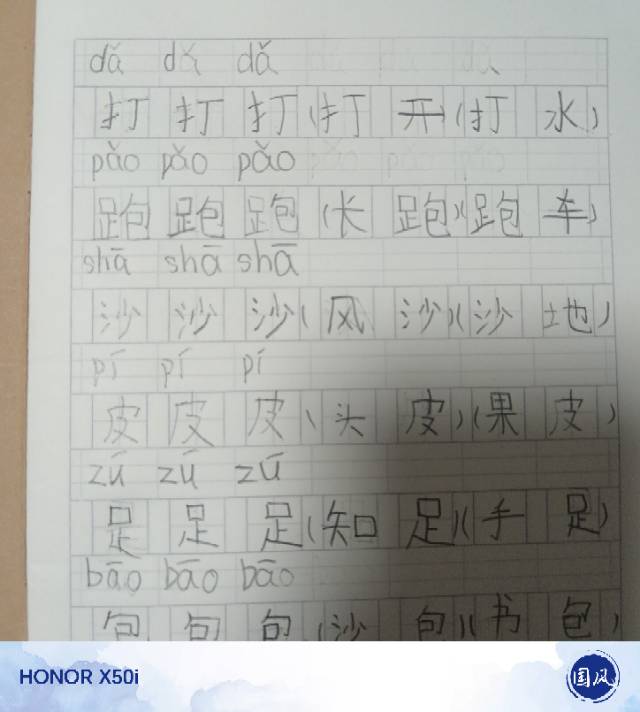 dǎ dǎ dǎ
打 打 打（打 开）（打 水）
pǎo pǎo pǎo
跑 跑 跑（长 跑）（跑 车）
shā shā shā
沙 沙 沙（风 沙）（沙 地）
pí pí pí
皮 皮 皮（头 皮）（果 皮）
zú zú zú
足 足 足（知 足）（手 足）
bāo bāo bāo
包 包 包（沙 包）（书 包）
HONOR X50i
国风